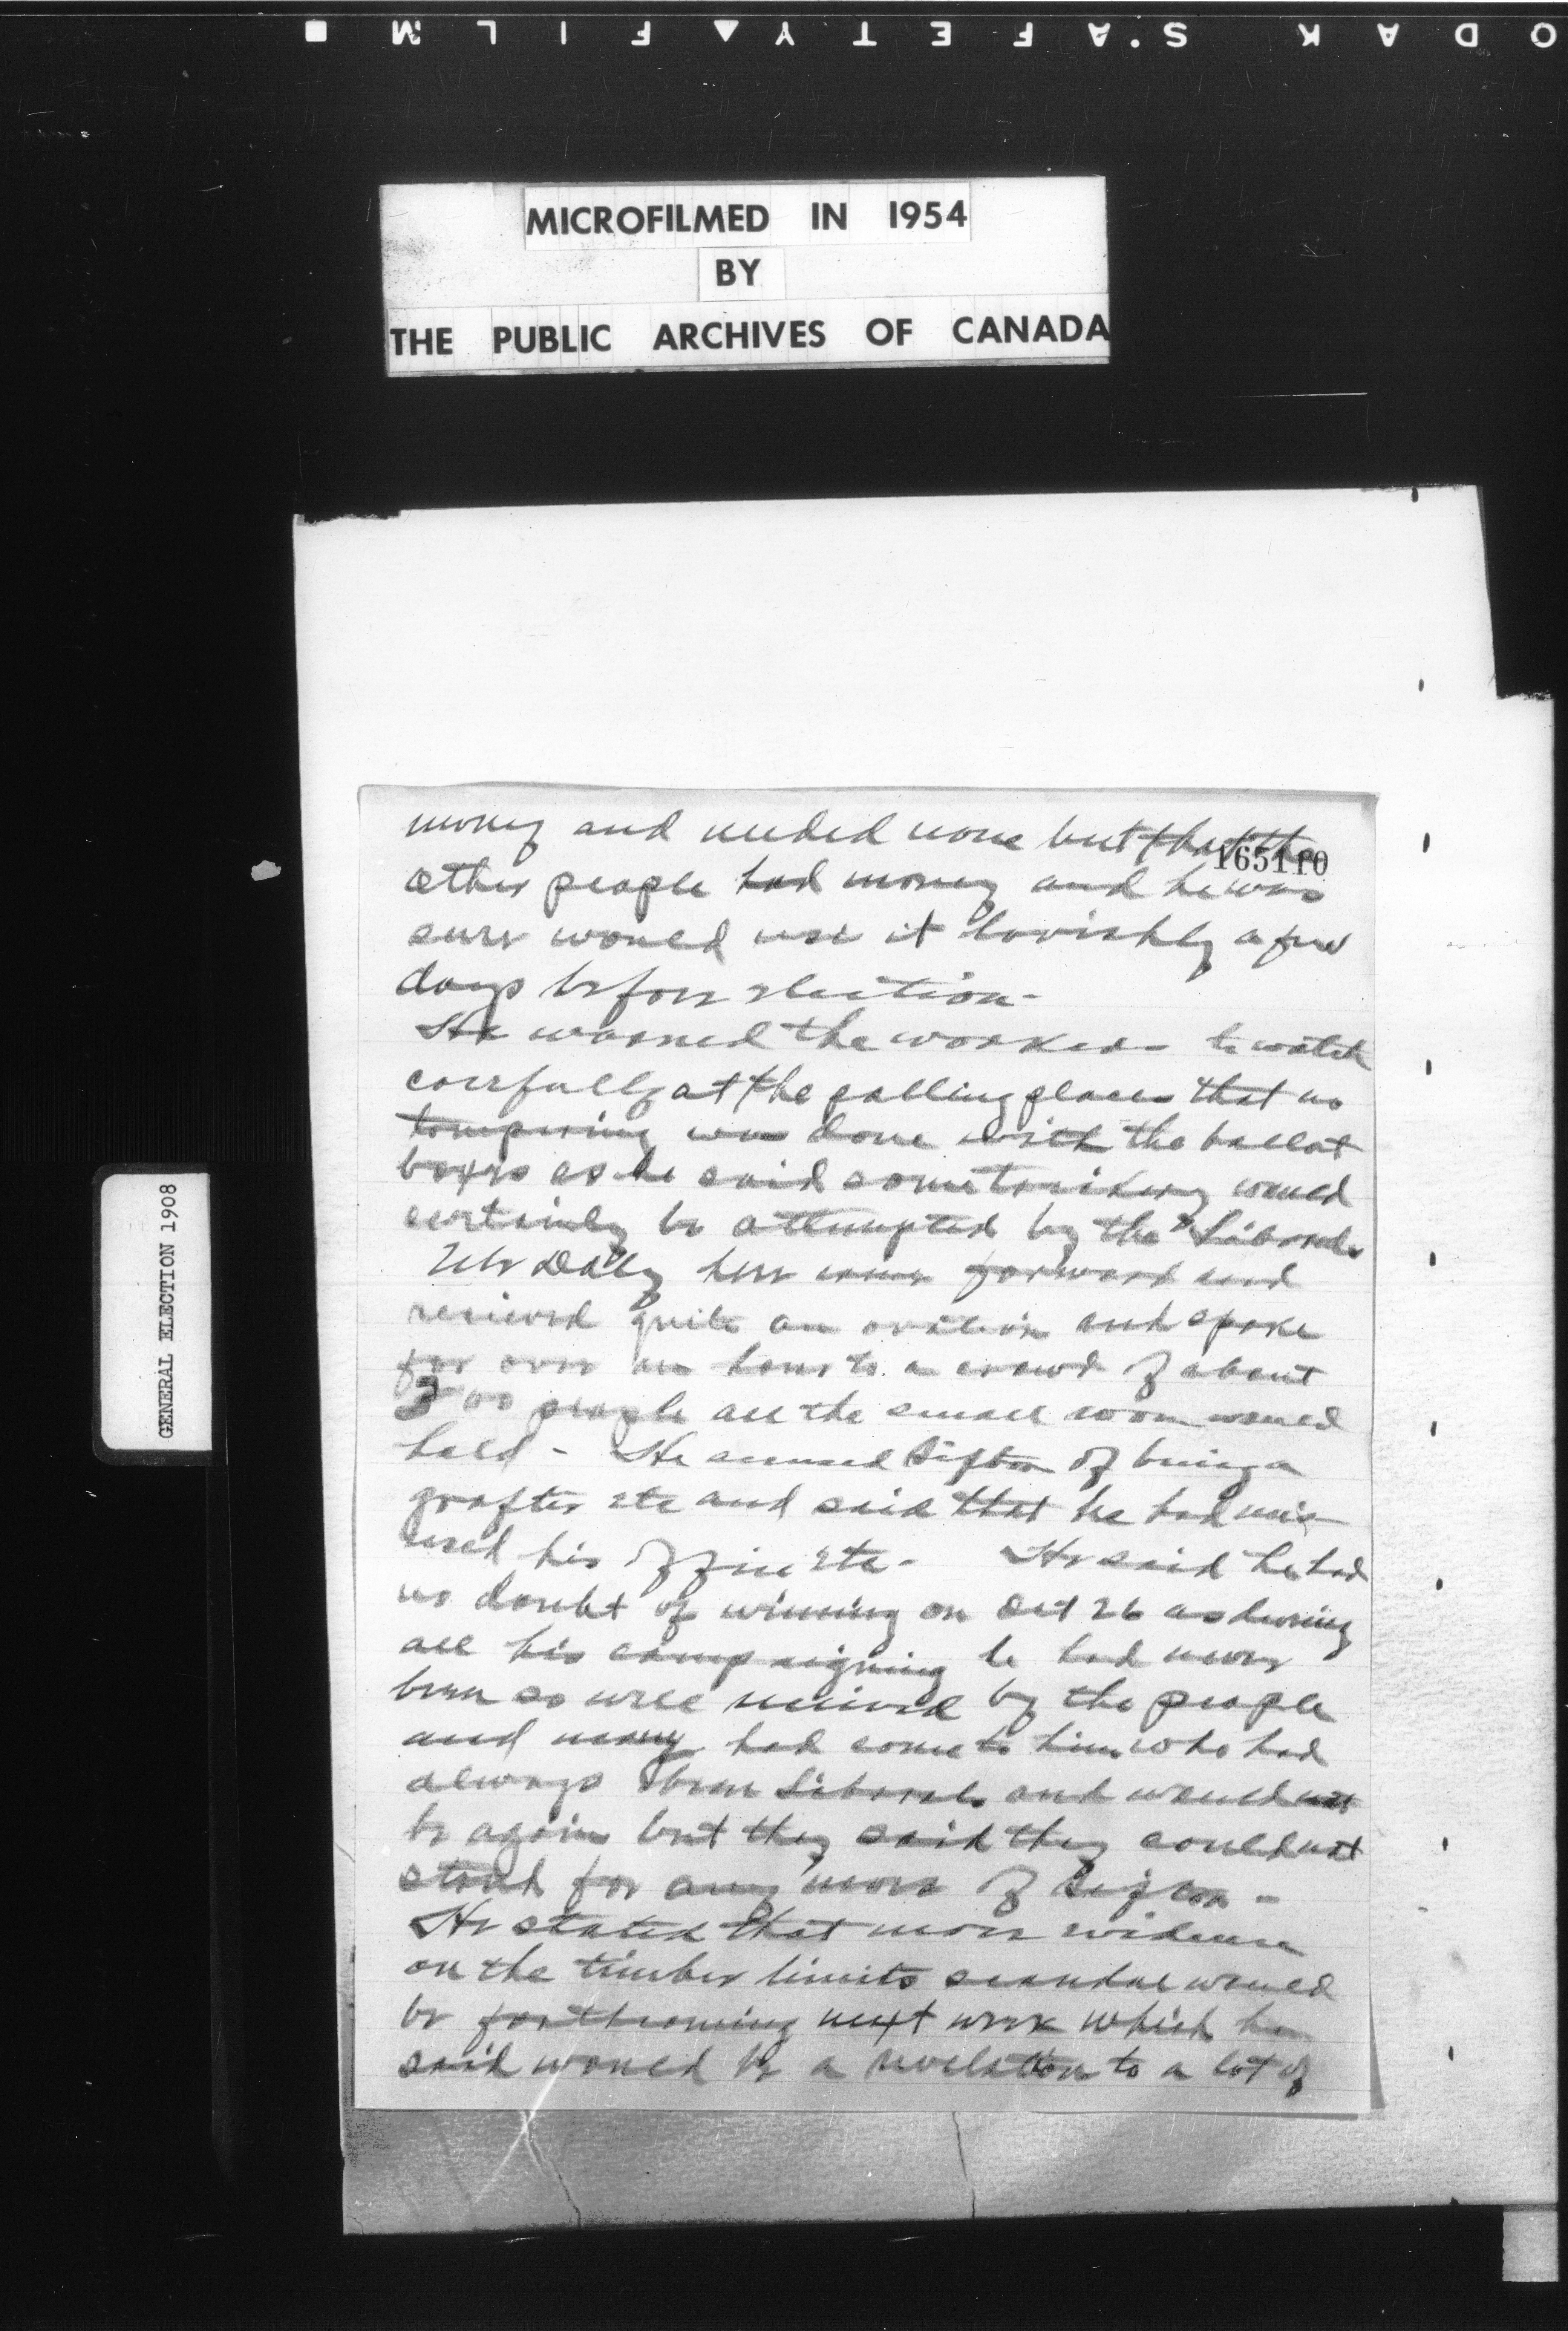 KODAK SAFETY FILM
MICROFILMED IN 1954
BY
THE PUBLIC ARCHIVES OF CANADA
GENERAL ELECTION 1908
165110
money and needed none but that the
other people had money and he was
sure would use it lavishly a few
days before election -
He warned the workers to watch
carefully at the polling places that no
tampering was done with the ballot
boxes as he said some trickery would
certainly be attempted by the Liberals
Mr Daly here came forward and
recieved quite an ovation and spoke
for over an hour to a crowd of about
people all the small room would
hold - He accused Sifton of being a
grafter etc and said that he had mis
used his office etc - He said he had
no doubt of winning on Oct 26 as during
all his campaigning he had never
been so well recieved by the people
and many had come to him who had
always been Liberals and would
be again but they said they could not
stand for any more of Sifton -
He stated that more evidence
on the timber limits scandal would
be forthcoming next week which he
said would be a revelation to a lot of